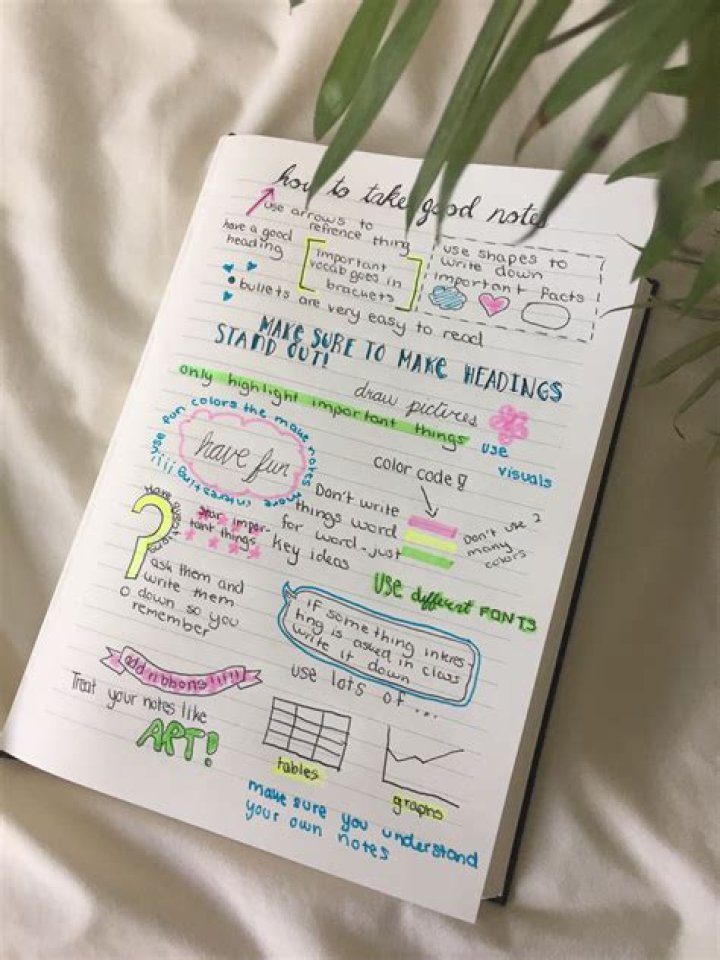 how to take good notes
use arrows to
refrence thing
have a good
heading
important
vocab goes in
brackets
use shapes to
write down
important facts
• bullets are very easy to read
MAKE SURE TO MAKE HEADINGS
STAND OUT!
only highlight important things
draw pictures
use
visuals
use fun colors the make notes more interesting !!!!
have fun
color code!
Don't write
things word
for word - just
key ideas
Don't use 2
many
colors
Have questions
ask them and
write them
down so you
remember
star impor-
tant things
USE different FONTS
if something interes-
ting is asked in class
write it down
add ribbons!!!!!
use lots of ...
Treat your notes like
ART!
tables
graphs
make sure you understand
your own notes